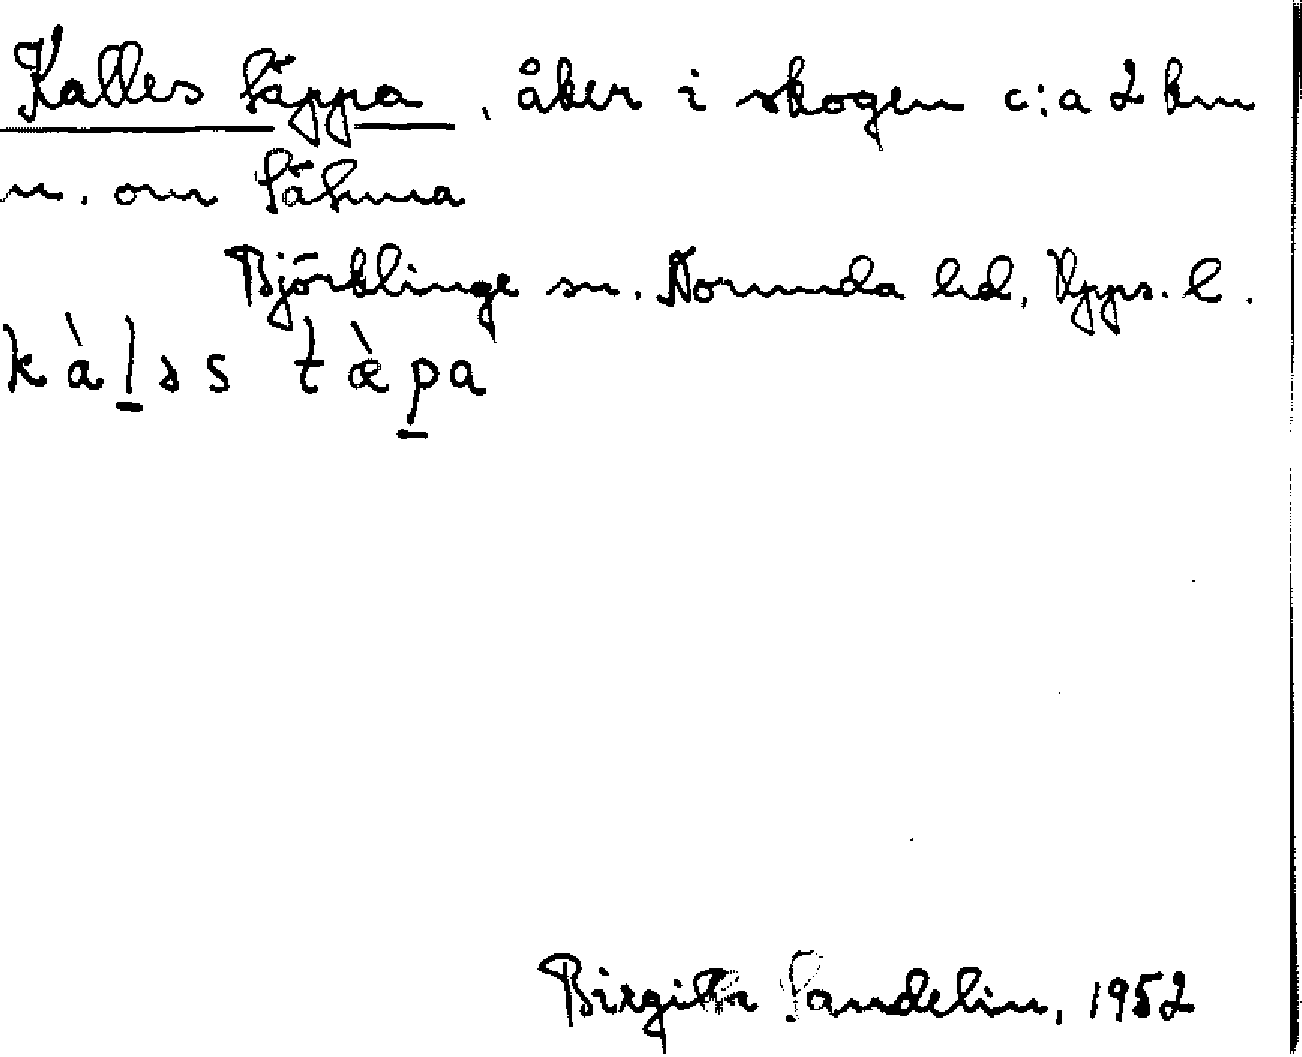 Kalles täppa, åker i skogen c:a 2 km
n. om Sätuna
Björklinge sn. Norunda hd, Upps. l.
kàl̲əs tæ̀p̲a
Birgitta Sandelin, 1952